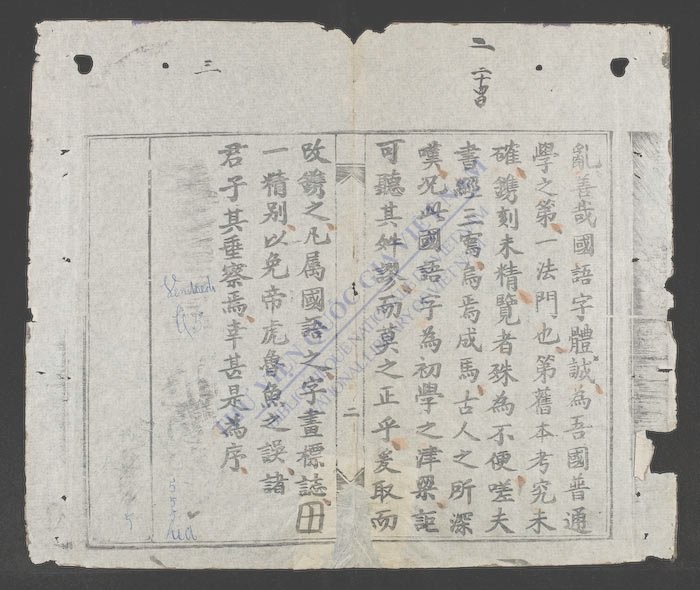 二
亂善哉國語字體誠為吾國普通
學之第一法門也第舊本考究未
確鐫刻未精覽者殊為不便嗟夫
書經三寫烏焉成馬古人之所深
嘆况此國語字為初學之津梁詎
可聽其舛謬而莫之正乎爰取而
二
三
改鐫之凡属國語之字畫標誌
一精别以免帝虎魯魚之誤諸
君子其垂察焉幸甚是為序
THƯ VIỆN QUỐC GIA VIỆT NAM
NATIONAL LIBRARY OF VIETNAM
5